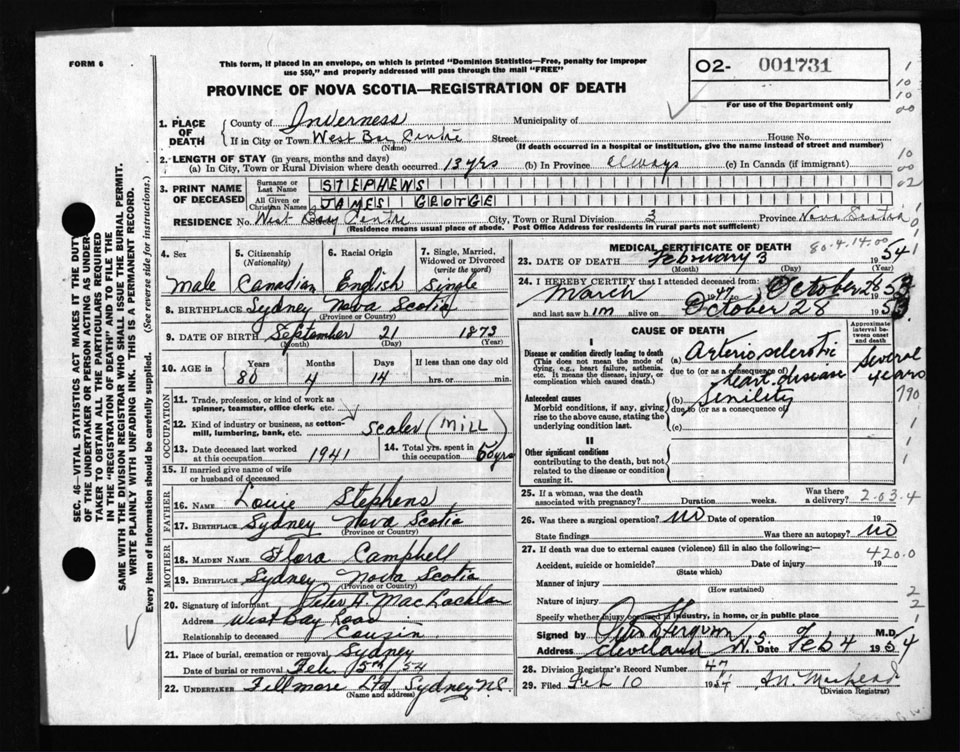 FORM 6
This form, if placed in an envelope, on which is printed "Dominion Statistics—Free, penalty for improper
use $50," and properly addressed will pass through the mail "FREE"
PROVINCE OF NOVA SCOTIA—REGISTRATION OF DEATH
02- 001731
For use of the Department only
1. PLACE OF DEATH
County of Inverness Municipality of
If in City or Town West Bay Centre Street House No.
(Name) (If death occurred in a hospital or institution, give the name instead of street and number)
2. LENGTH OF STAY (in years, months and days)
(a) In City, Town or Rural Division where death occurred 13 yrs (b) In Province always (c) In Canada (if immigrant)
3. PRINT NAME OF DECEASED
Surname or Last Name STEPHENS
All Given or Christian Names JAMES GEOTGE
RESIDENCE No. West Bay Centre City, Town or Rural Division 3 Province Nova Scotia
(Residence means usual place of abode. Post Office Address for residents in rural parts not sufficient)
4. Sex Male
5. Citizenship (Nationality) Canadian
6. Racial Origin English
7. Single, Married, Widowed or Divorced (write the word) Single
8. BIRTHPLACE Sydney Nova Scotia
(Province or Country)
9. DATE OF BIRTH September 21 1873
(Month) (Day) (Year)
10. AGE in Years 80 Months 4 Days 14 If less than one day old hrs. or min.
OCCUPATION
11. Trade, profession, or kind of work as spinner, teamster, office clerk, etc.
12. Kind of industry or business, as cotton-mill, lumbering, bank, etc. Scaler (Mill)
13. Date deceased last worked at this occupation 1941
14. Total yrs. spent in this occupation 50 yrs
15. If married give name of wife or husband of deceased
FATHER
16. Name Louie Stephens
17. Birthplace Sydney Nova Scotia
(Province or Country)
MOTHER
18. MAIDEN NAME Flora Campbell
19. Birthplace Sydney Nova Scotia
(Province or Country)
20. Signature of informant Peter A. MacLachlan
Address West Bay Road
Relationship to deceased Cousin
21. Place of burial, cremation or removal Sydney
Date of burial or removal Feb. 5th/54
22. UNDERTAKER Fillmore Ltd, Sydney N.S.
(Name and address)
MEDICAL CERTIFICATE OF DEATH
80-4-14-00
23. DATE OF DEATH February 3 1954
(Month) (Day) (Year)
24. I HEREBY CERTIFY that I attended deceased from:
March 1947 to October 28 1953
and last saw him alive on October 28 1953
CAUSE OF DEATH
Approximate interval between onset and death
I
Disease or condition directly leading to death
(This does not mean the mode of dying, e.g., heart failure, asthenia, etc. It means the disease, injury, or complication which caused death.)
(a) Arteriosclerotic
due to (or as a consequence of)
heart disease
Several years
Antecedent causes
Morbid conditions, if any, giving rise to the above cause, stating the underlying condition last.
(b) Senility
due to (or as a consequence of)
(c)
790
II
Other significant conditions
contributing to the death, but not related to the disease or condition causing it.
25. If a woman, was the death associated with pregnancy? Duration weeks. Was there a delivery?
2-03-4
26. Was there a surgical operation? no Date of operation 19
State findings Was there an autopsy? no
27. If death was due to external causes (violence) fill in also the following:—
420.0
Accident, suicide or homicide? Date of injury 19
(State which)
Manner of injury
(How sustained)
Nature of injury
Specify whether injury occurred in industry, in home, or in public place
Signed by Ferguson M.D
Address Cleveland N.S. Date Feb 4 1954
28. Division Registrar's Record Number 47
29. Filed Feb 10 1954
(Division Registrar)
SEC. 46—VITAL STATISTICS ACT MAKES IT THE DUTY
OF THE UNDERTAKER OR PERSON ACTING AS UNDER-
TAKER TO OBTAIN ALL THE PARTICULARS REQUIRED
IN THE "REGISTRATION OF DEATH" AND TO FILE THE
SAME WITH THE DIVISION REGISTRAR WHO SHALL ISSUE THE BURIAL PERMIT.
WRITE PLAINLY WITH UNFADING INK. THIS IS A PERMANENT RECORD.
Every item of information should be carefully supplied. (See reverse side for instructions.)